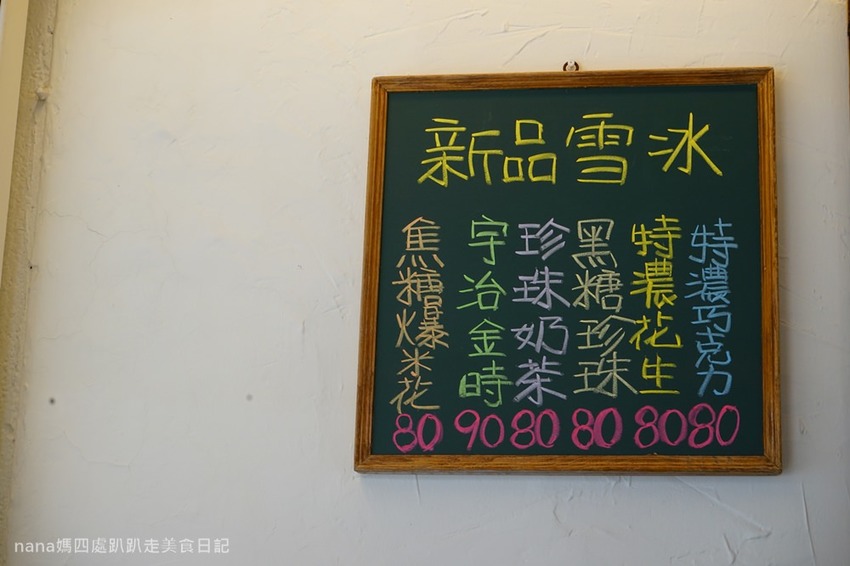 新品雪冰
特濃巧克力 80
特濃花生 80
黑糖珍珠 80
珍珠奶茶 80
宇治金時 90
焦糖爆米花 80
nana媽四處趴趴走美食日記